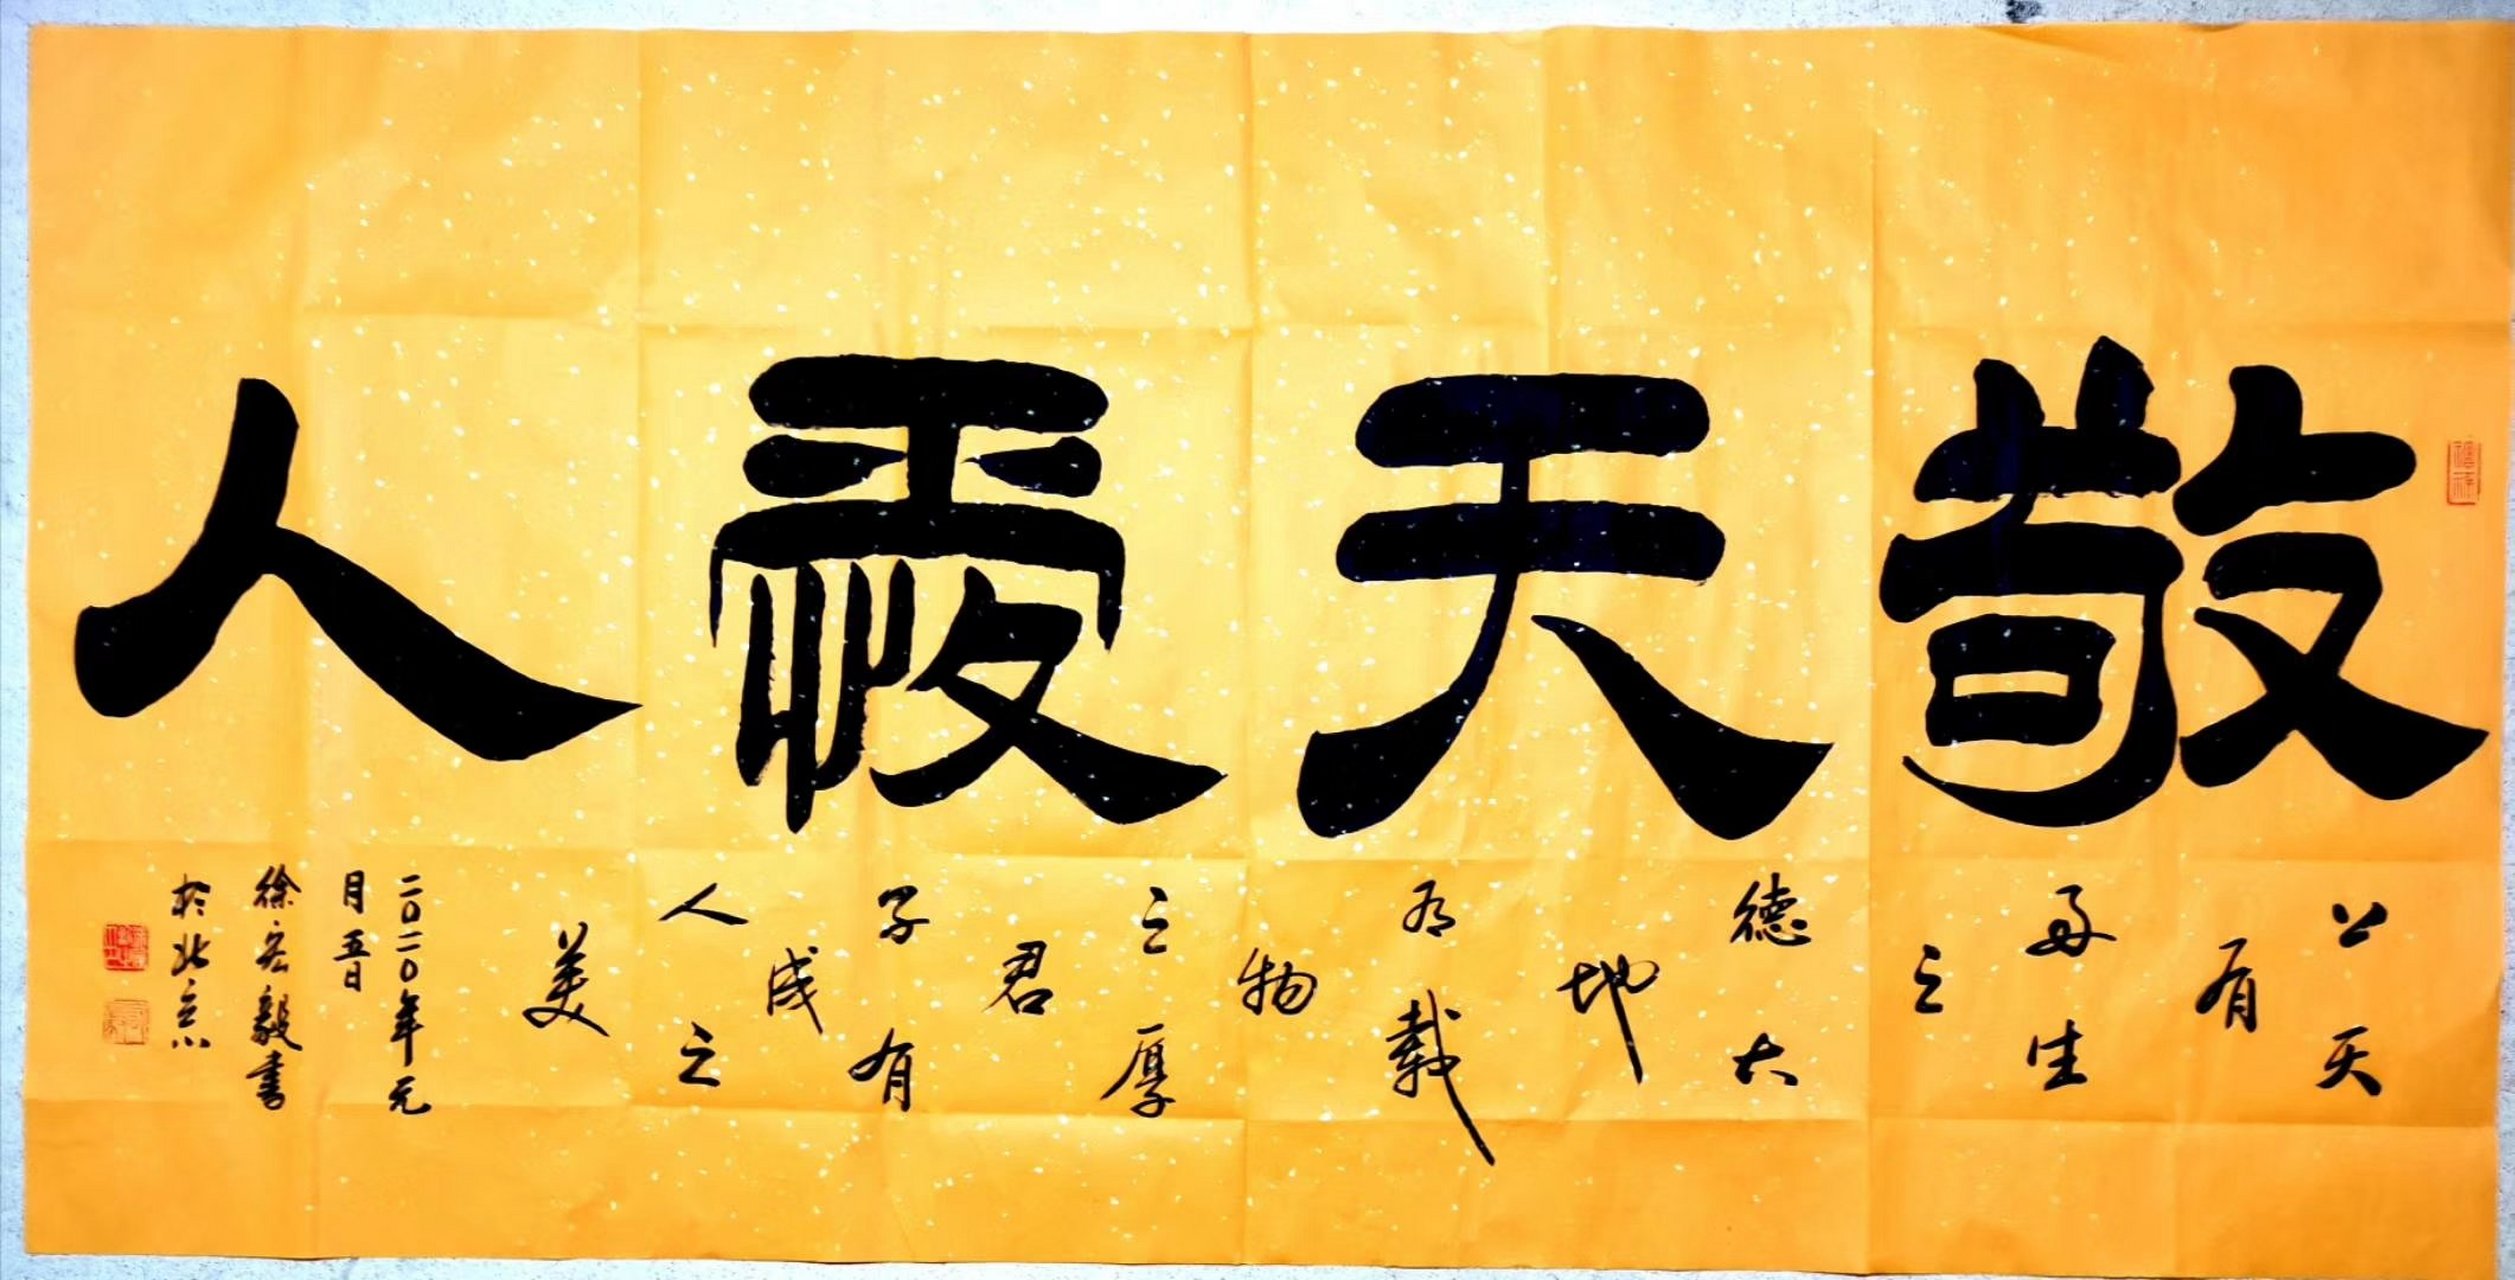 敬天愛人
上天
有
好生
之
德大
地
有載
物
之厚
君
子有
成
人之
美
二〇二〇年元
月五日
徐宏毅書
於北京